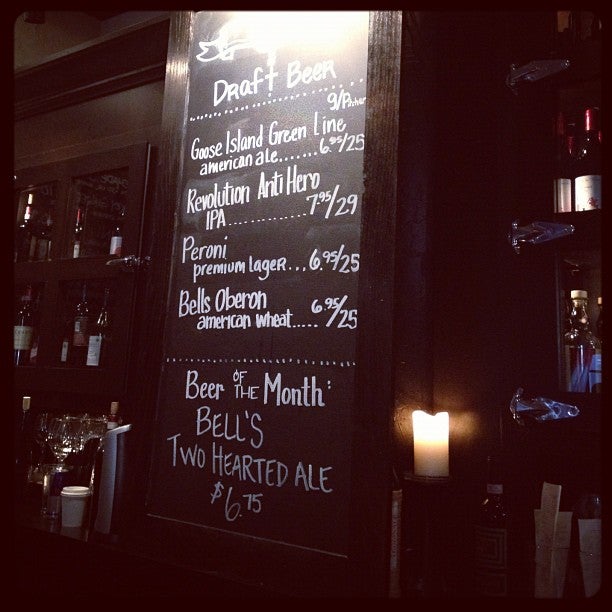 Draft Beer
9/Pitcher
Goose Island Green Line
american ale....... 6.95/25
Revolution Anti Hero
IPA............. 7.95/29
Peroni
premium lager... 6.95/25
Bells Oberon 6.95/25
american wheat.....
Beer OF THE Month:
BELL'S
TWO HEARTED ALE
$6.75